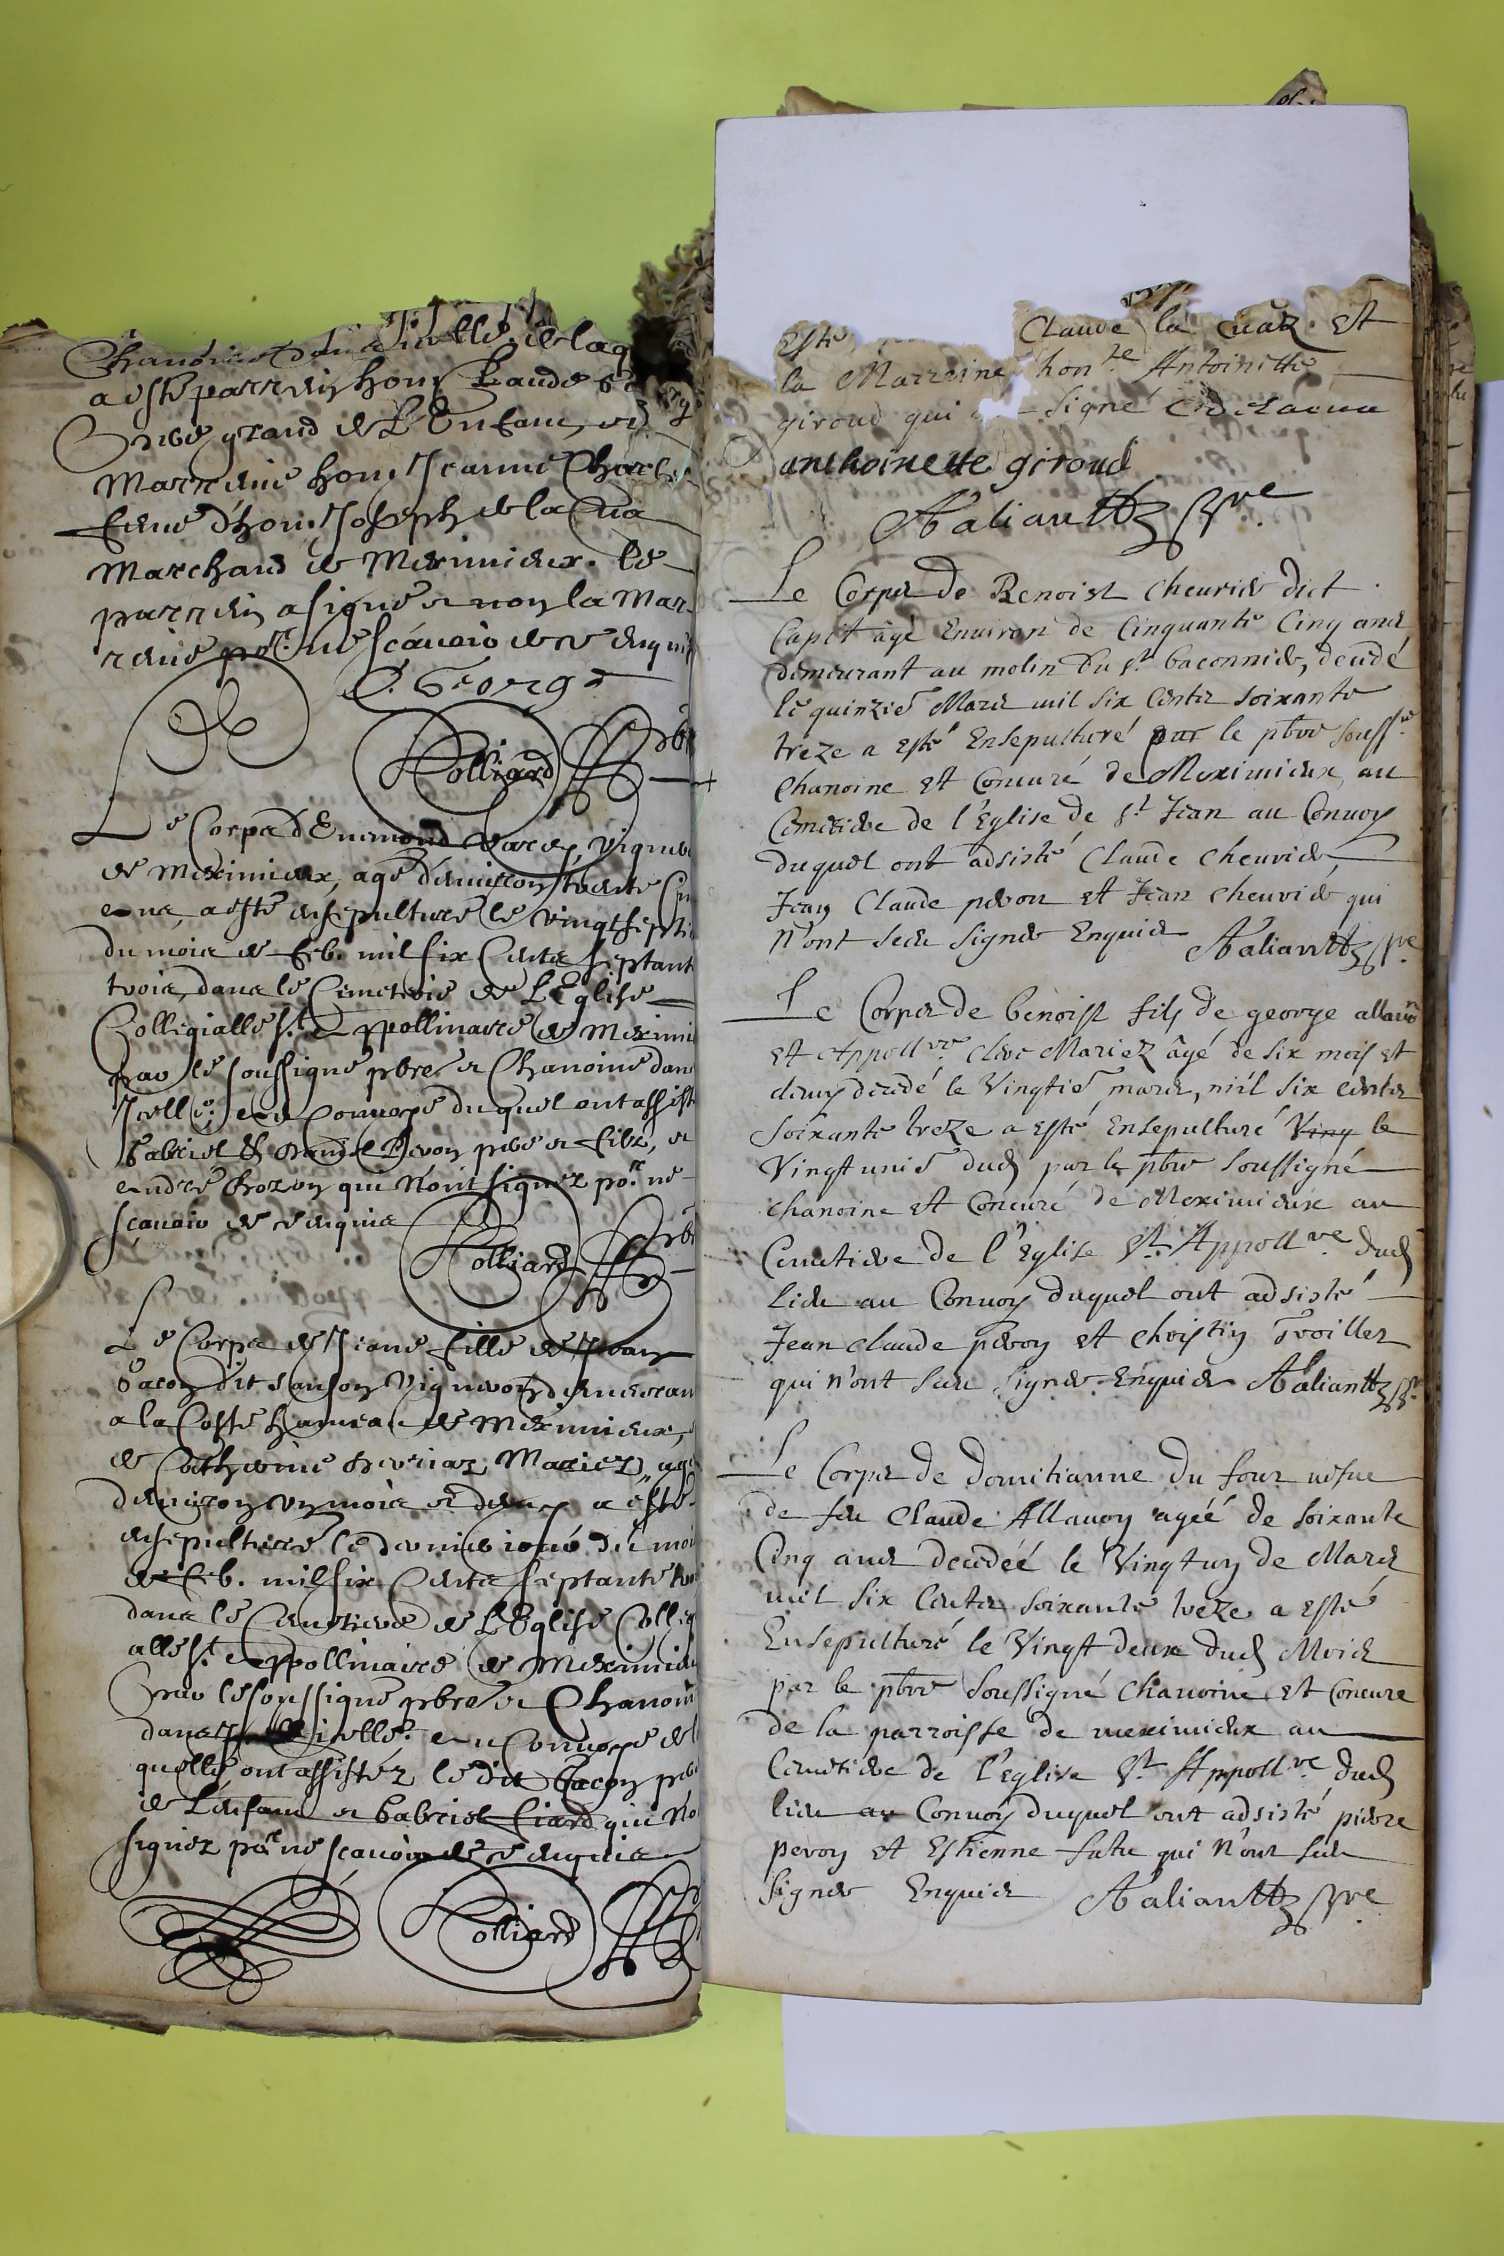 a esté parrein hon
grand de L'Enfant, et
Marreine hon. Jeanne Charl
feme d'hon. Joseph de la Cua
Marchand de Meximieux. le
parrein a signé et non la Mar
reine por. ne sçauoir de ce enquis
C. George
Rolliard pbr
Le Corps d'Enimond Vigner
de Meximieux, agé d'enuiron trente Cin
ans, a esté ensepulturé le vingt septie
du mois de feb. mil six Cents septant
trois, dans le Cimetiere de L'Eglise
Collegialle St. Appollinaire de Meximi
par le soussigné pbre et Chanoine dans
Icelle: au Conuoye duquel ont assist
Gabriel & Claude Peron pere et filz, et
andré Chozon qui n'ont signez por. ne
sçauoir de ce enquis
Rolliard pbr
Le Corps de Jeane fille de Jean
Bacon dit Sanson Vigneron demeuran
a la Coste hameau de Meximieux,
de Catherine Mariez, agé
d'enuiron vn mois et demy a esté
ensepulturé le dernier iour du moi
de feb. mil six Cents septante troi
dans le Cimetiere de L'Eglise Colleg
alle St. Appollinaire de Meximieu
par le soussigné pbre et Chanoin
dans icelle: au Conuoye de l
quelle ont assistez le dit Bacon pere
de L'enfant et Gabriel Liard qui n'o
signez por ne sçauoir de ce enquis
Rolliard
Esté Claude la Cuaz. Et
la Marreine hon.te Antoinette
giroud qui signé C de Lacua
anthoinette giroud
Aaliauttz pre.
Le Corps de Benoist Cheurier dict
Capit âgé Enuiron de Cinquante Cinq ans
demeurant au molin du sr. baconnier, decedé
le quinzie Mars mil six Cents soixante
treze a Esté Ensepulturé par le pbre souss.né
Chanoine Et Concuré de Meximieux au
Cemetiere de l'Eglise de St. Jean au Conuoy
duquel ont adsisté Claude Cheurier,
Jean Claude peron et Jean Cheurié qui
n'ont sceu signer Enquis Aaliauttz pre.
Le Corps de benoist fils de george allauo
et Appoll.re Clerc Mariez âgé de six mois et
demy decedé le Vingtie mars, mil six cents
soixante treze a esté Ensepulturé Ving le
Vingt unie dud par le pbre soussigné
chanoine et Concuré de Meximieux au
Cemetiere de l'Eglise St. Appoll.re dud
lieu au Conuoy duquel ont adsisté
Jean Claude peron et Christin Troillet
qui n'ont sceu signer Enquis Aaliauttz pre.
Le Corps de domitianne du four vefue
de feu Claude Allauoy agéé de soixante
Cinq ans decedéé le Vingtun de Mars
mil six Cents soixante treze a esté
Ensepulturé le Vingt deux dud Mois
par le pbre soussigné Chanoine et Concuré
de la parroisse de meximieux au
Cemetiere de l'Eglise St. Appoll.re dud
lieu au Conuoy duquel ont adsisté pierre
peron et Estienne futu qui n'ont sceu
signer Enquis Aaliauttz pre